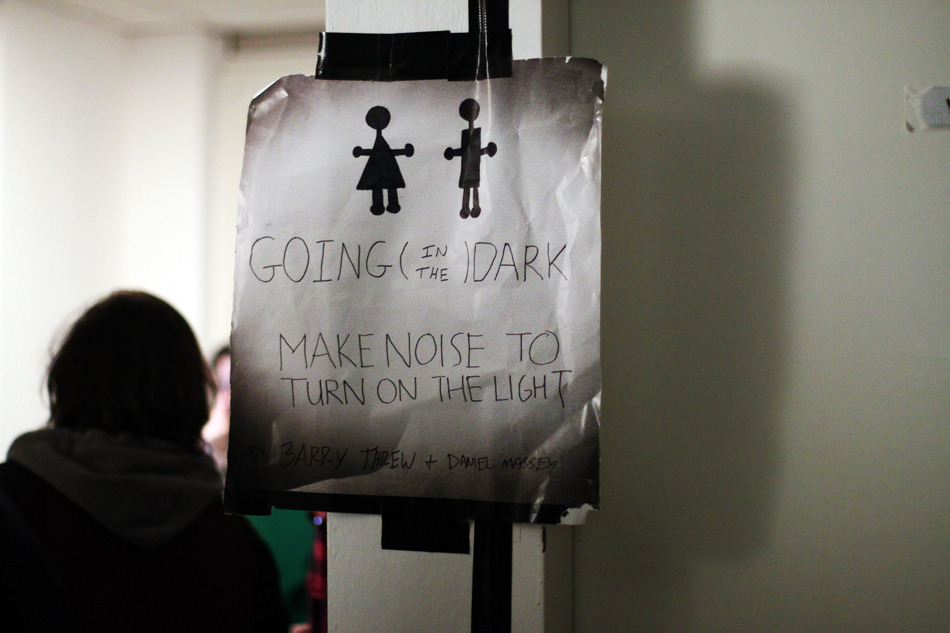 GOING (IN THE) DARK
MAKE NOISE TO
TURN ON THE LIGHT
BY BARRY THREW + DANIEL MASSEY